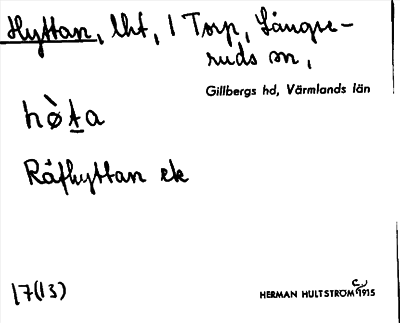 Hyttan, lht, 1 Torp, Långse-
ruds sn,
Gillbergs hd, Värmlands län
hø̀ṯa
Råfhyttan ek
17(13)
HERMAN HULTSTRÖM 1915